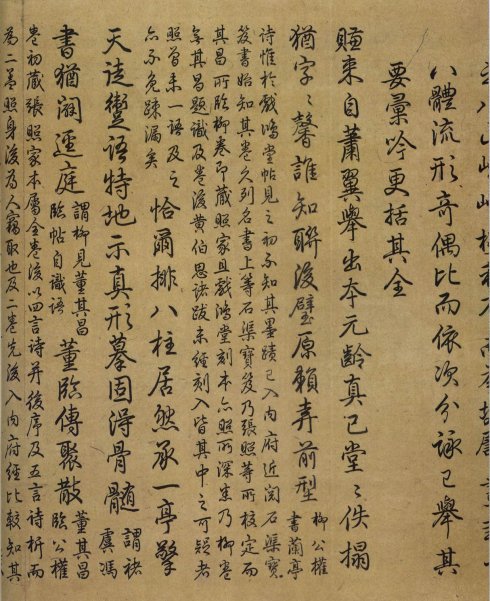 八體流形奇偶比而依次分詠已舉其
要彙吟更括其全
賺來自蕭翼舉出本元齡真已堂〻佚搨
猶字〻馨誰知聯後璧原賴弄前型柳公權
書蘭亭
詩惟於戲鴻堂帖見之初不知其墨蹟已入內府近閱石渠寶
笈書始知其卷久列名書上等石渠寶笈乃張照等所校定董
其昌所臨柳卷即藏照家且戲鴻堂刻本亦照所深悉乃柳卷
其昌題識及卷後黃伯思諸跋未經刻入皆其中之可疑者
照曾未一語及之
亦不免疎漏矣
恰爾排八柱居然承一亭擎
天徒躗語特地示真形摹固得骨髓謂褚
虞馮
書猶闖逕庭謂柳見董其昌
臨帖自識語
董臨傳聚散董其昌
臨公權
卷初藏張照家本屬全卷後以四言詩并後序及五言詩析而
為二蓋照身後為人竊取也及二卷先後入內府經比較知其